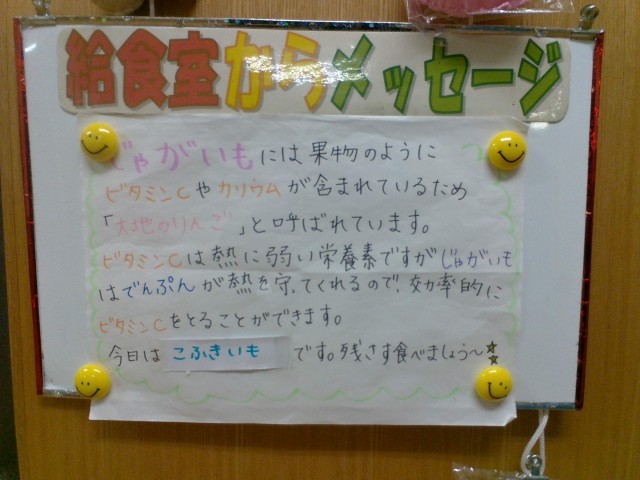 給食室からメッセージ
じゃがいもには果物のように
ビタミンCやカリウムが含まれているため
「大地のりんご」と呼ばれています。
ビタミンCは熱に弱い栄養素ですがじゃがいも
はでんぷんが熱を守ってくれるので、効率的に
ビタミンCをとることができます。
今日は こふきいも です。残さず食べましょう〜